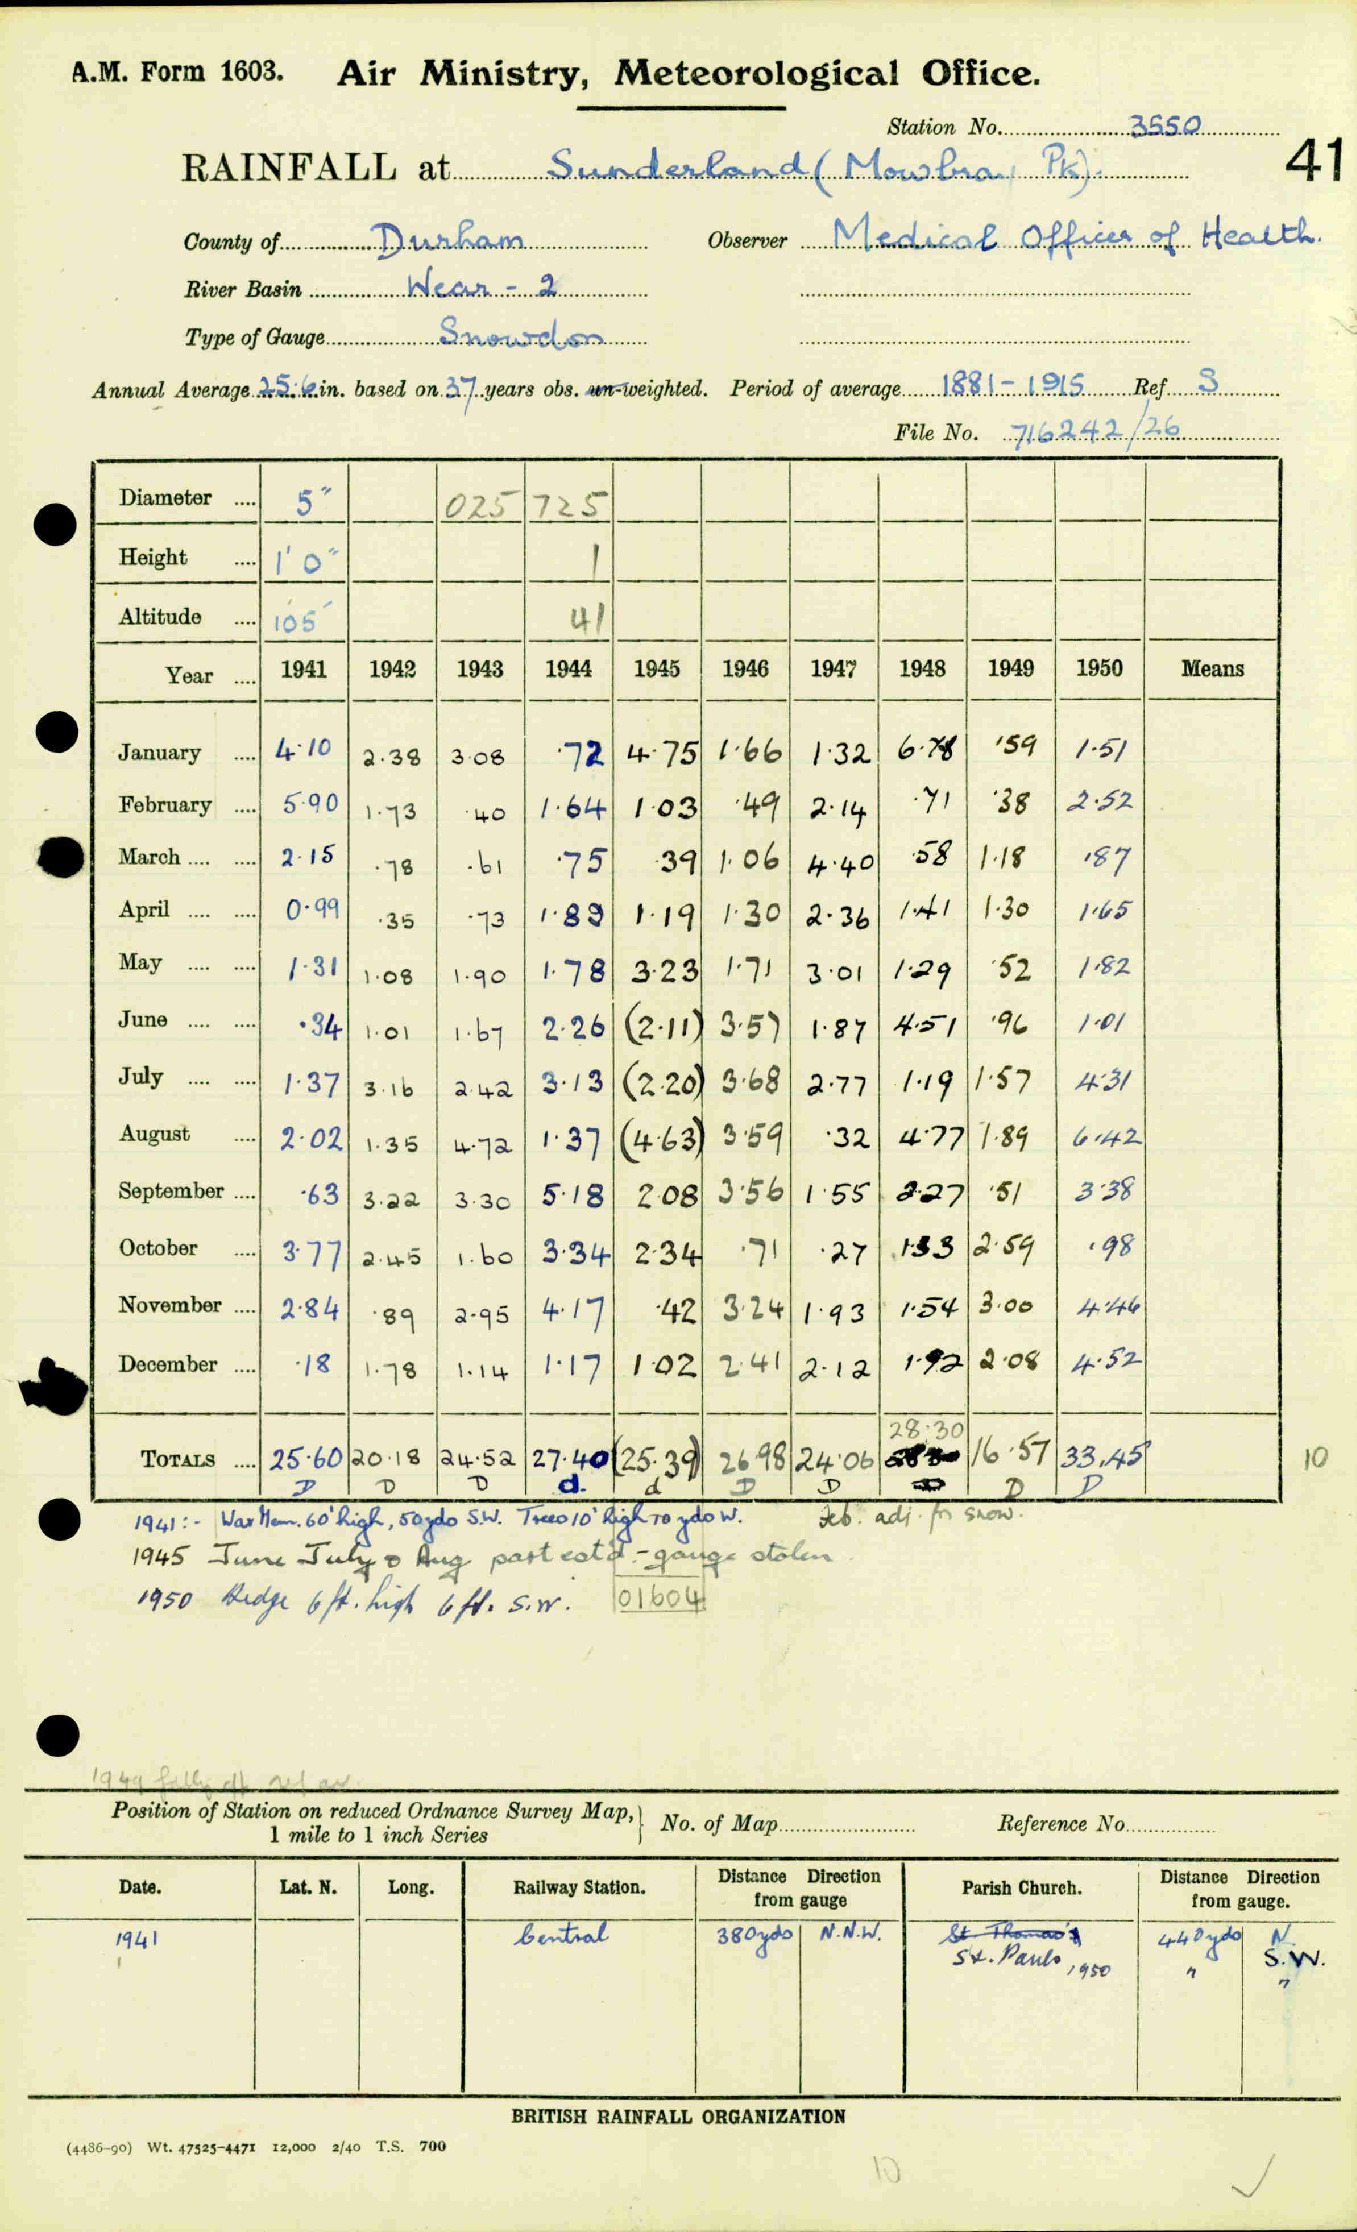 A.M. Form 1603. Air Ministry, Meteorological Office.
Station No. 3550
41
RAINFALL at Sunderland (Mowbray Pk).
County of Durham Observer Medical Officer of Health.
River Basin Wear - 2
Type of Gauge Snowdon
Annual Average 25.6 in. based on 37 years obs. un-weighted. Period of average 1881-1915 Ref. S
File No. 716242/26
Diameter .... 5" 025 725
Height .... 1' 0" 1
Altitude .... 105' 41
Year .... 1941 1942 1943 1944 1945 1946 1947 1948 1949 1950 Means
January .... 4.10 2.38 3.08 .72 4.75 1.66 1.32 6.78 .59 1.51
February .... 5.90 1.73 .40 1.64 1.03 .49 2.14 .71 .38 2.52
March .... .... 2.15 .78 .61 .75 .39 1.06 4.40 .58 1.18 .87
April .... .... 0.99 .35 .73 1.89 1.19 1.30 2.36 1.41 1.30 1.65
May .... .... 1.31 1.08 1.90 1.78 3.23 1.71 3.01 1.29 .52 1.82
June .... .... .34 1.01 1.67 2.26 (2.11) 3.57 1.87 4.51 .96 1.01
July .... .... 1.37 3.16 2.42 3.13 (2.20) 3.68 2.77 1.19 1.57 4.31
August .... 2.02 1.35 4.72 1.37 (4.63) 3.59 .32 4.77 1.89 6.42
September .... .63 3.22 3.30 5.18 2.08 3.56 1.55 2.27 .51 3.38
October .... 3.77 2.45 1.60 3.34 2.34 .71 .27 1.33 2.59 .98
November .... 2.84 .89 2.95 4.17 .42 3.24 1.93 1.54 3.00 4.46
December .... .18 1.78 1.14 1.17 1.02 2.41 2.12 1.92 2.08 4.52
28.30
TOTALS .... 25.60 20.18 24.52 27.40 (25.39) 26.98 24.06 16.57 33.45 10
D D D d. d D D D D
1941:- War Mem. 60' high, 50 yds S.W. Trees 10' high 70 yds W. Feb. adj. for snow.
1945 June July & Aug part estd. - gauge stolen
1950 Hedge 6 ft. high 6 ft. S.W. 01604
1949
Position of Station on reduced Ordnance Survey Map, } No. of Map Reference No.
1 mile to 1 inch Series
Date. Lat. N. Long. Railway Station. Distance Direction from gauge Parish Church. Distance Direction from gauge.
1941 Central 380 yds N.N.W. St. Thomas's 440 yds N.
St. Pauls, 1950 " S.W.
"
BRITISH RAINFALL ORGANIZATION
(4486-90) Wt. 47525-4471 12,000 2/40 T.S. 700
10